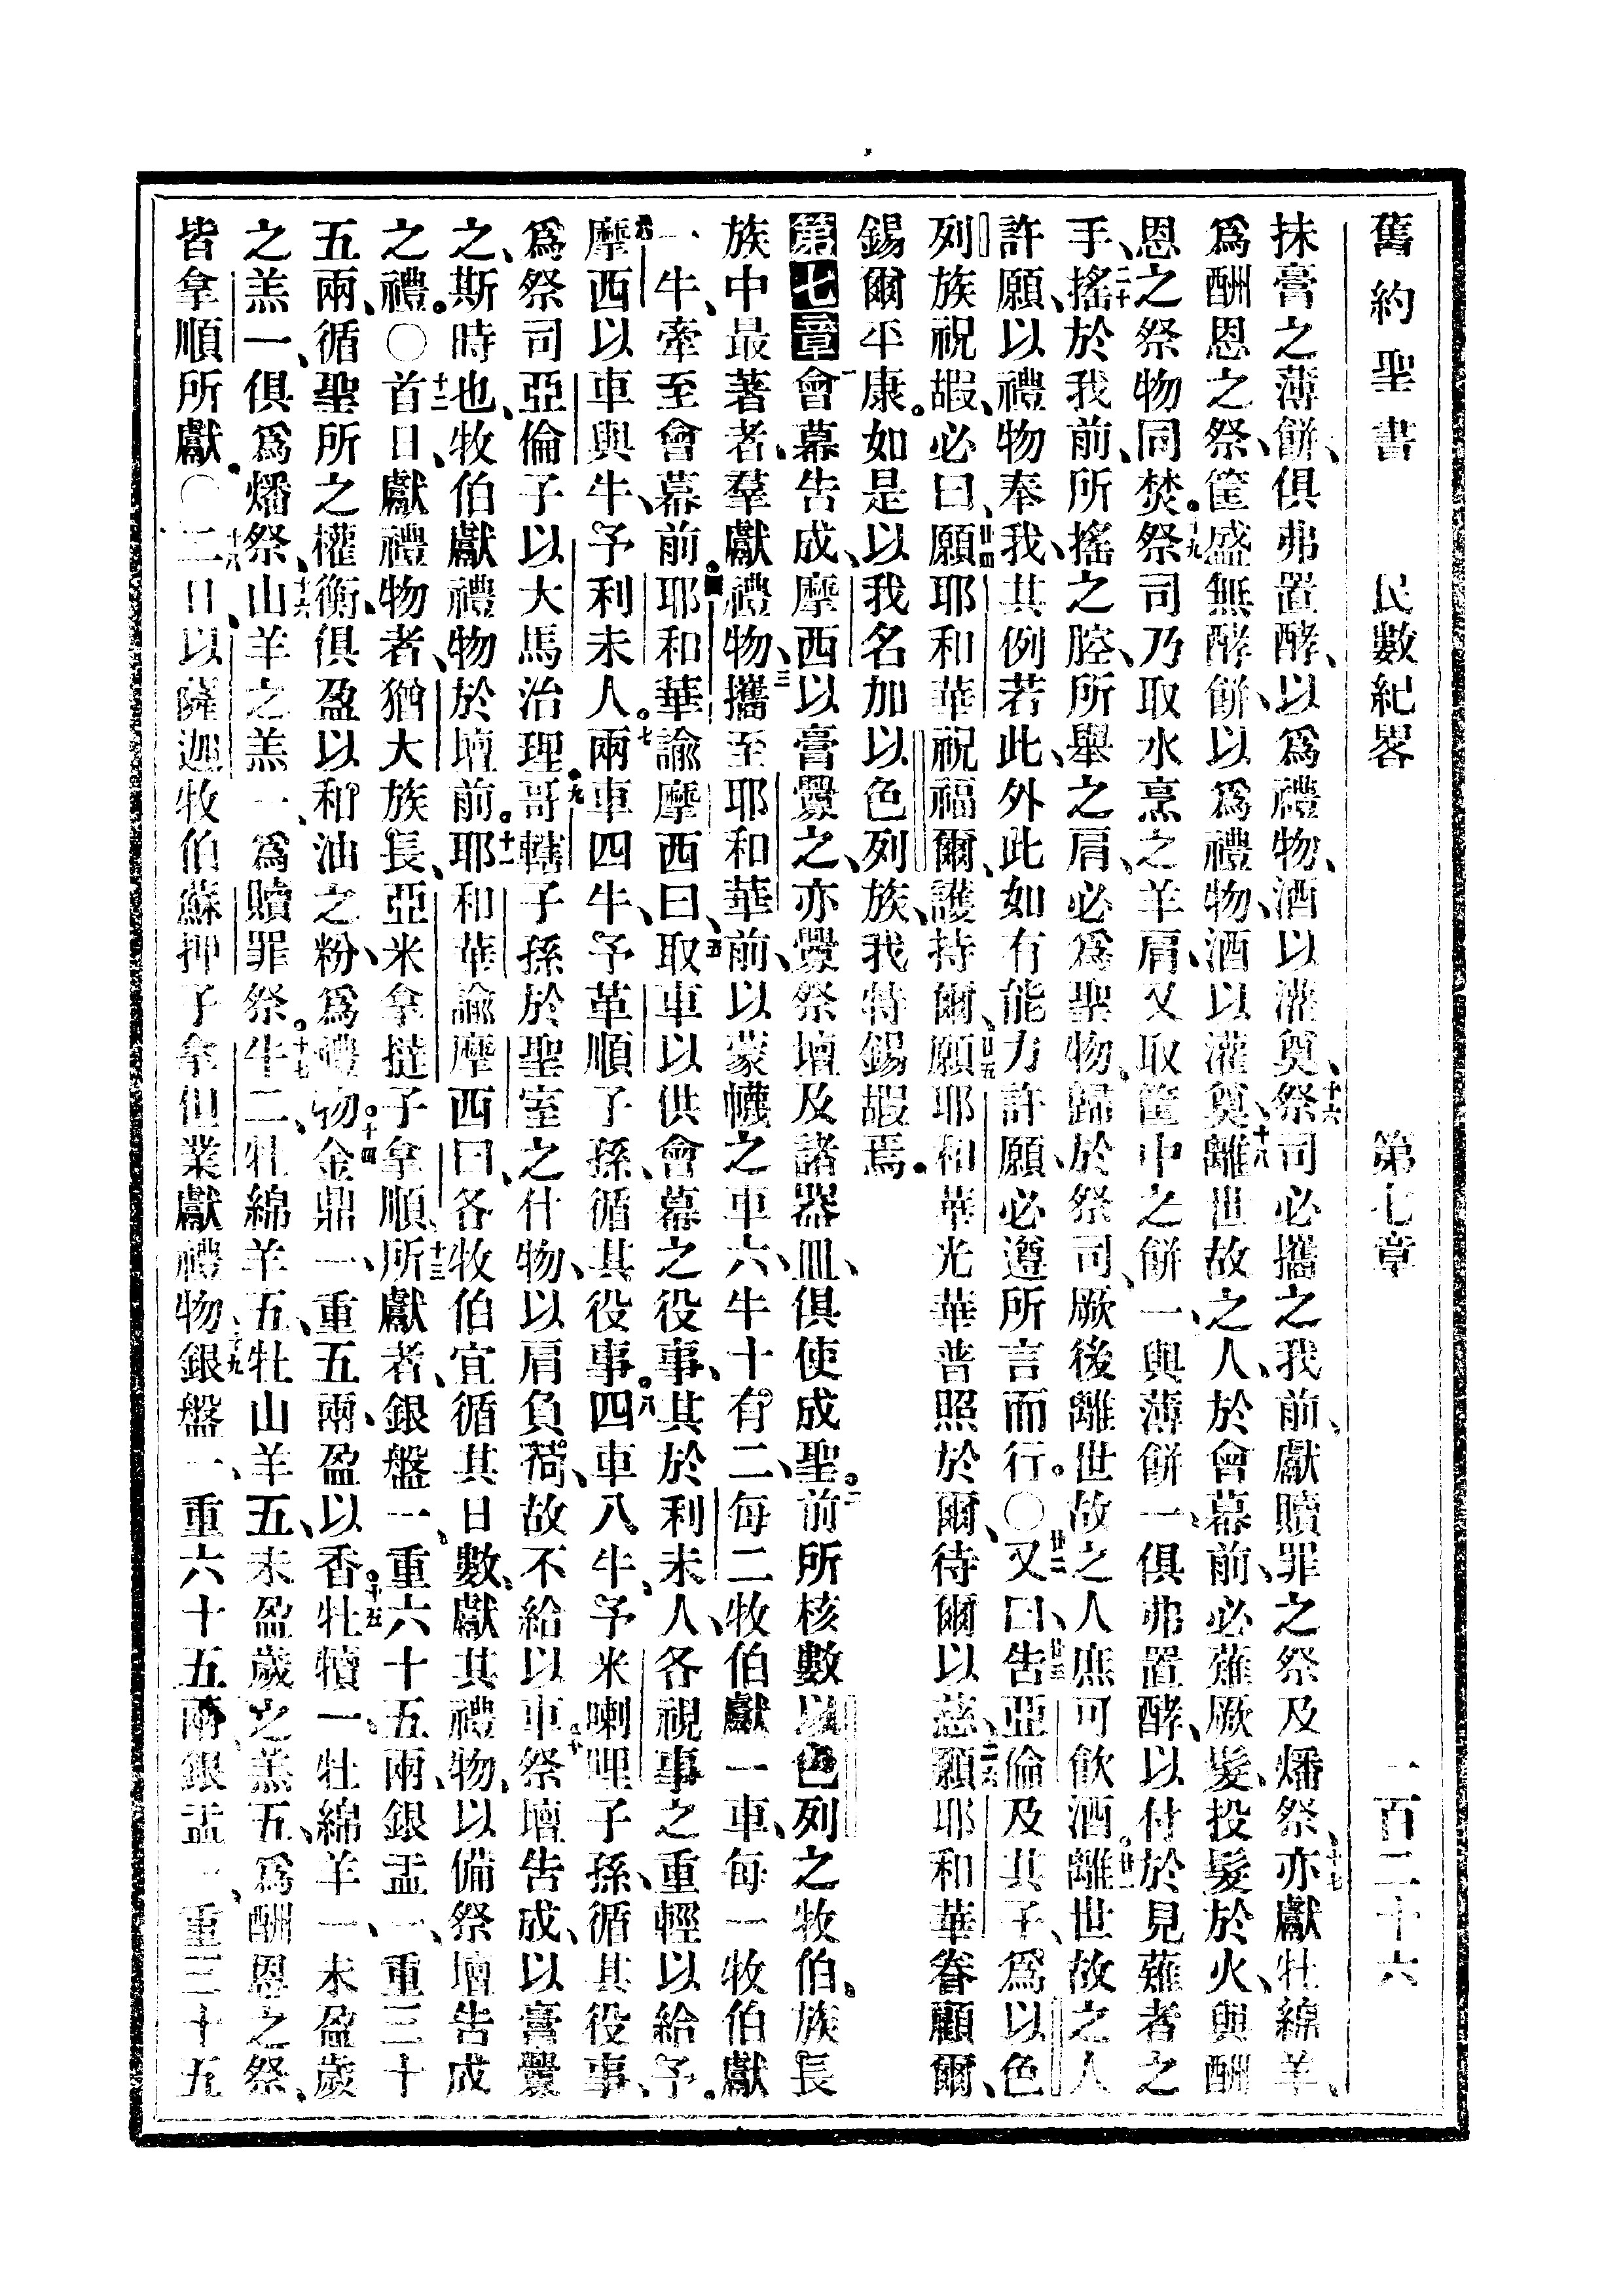 舊約聖書　民數紀畧　第七章　一百二十六
抹膏之薄餅、俱弗置酵、以爲禮物、酒以灌奠、十六祭司必攜之我前、獻贖罪之祭及燔祭、十七亦獻牡綿羊、
爲酬恩之祭、筐盛無酵餅、以爲禮物、酒以灌奠、十八離世故之人、於會幕前、必薙厥髮、投髮於火、與酬
恩之祭物同焚。十九祭司乃取水烹之羊肩、又取筐中之餅一、與薄餅一、俱弗置酵、以付於見薙者之
手、二十搖於我前、所搖之腔、所舉之肩、必爲聖物、歸於祭司、厥後離世故之人、庶可飲酒。廿一離世故之人
許願、以禮物奉我、其例若此、外此如有能力許願、必遵所言而行。〇廿二又曰、廿三告亞倫及其子、爲以色
列族祝嘏、必曰、廿四願耶和華祝福爾、護持爾、廿五願耶和華光華普照於爾、待爾以慈、二六願耶和華眷顧爾、
錫爾平康。如是以我名加以色列族、我特錫嘏焉。
第七章一會幕告成、摩西以膏釁之、亦釁祭壇及諸器皿、俱使成聖。二前所核數以色列之牧伯、族長
族中最著者、羣獻禮物、三攜至耶和華前、以蒙幭之車六、牛十有二、每二牧伯獻一車、每一牧伯獻
一牛、牽至會幕前。四耶和華諭摩西曰、五取車以供會幕之役事、其於利未人、各視事之重輕以給予。
六摩西以車與牛、予利未人。七兩車四牛、予革順子孫、循其役事。八四車八牛、予米喇哩子孫、循其役事、
爲祭司亞倫子以大馬治理。九哥轄子孫於聖室之什物、以肩負荷、故不給以車。十祭壇告成、以膏釁
之、斯時也、牧伯獻禮物於壇前。十一耶和華諭摩西曰、各牧伯宜循其日數、獻其禮物、以備祭壇告成
之禮。〇十二首日、獻禮物者、猶大族長、亞米拿撻子拿順、十三所獻者、銀盤一、重六十五兩、銀盂一、重三十
五兩、循聖所之權衡、俱盈以和油之粉、爲禮物。十四金鼎一、重五兩、盈以香。十五牡犢一、牡綿羊一、未盈歲
之羔一、俱爲燔祭、十六山羊之羔一、爲贖罪祭。十七牛二、牡綿羊五、牡山羊五、未盈歲之羔五、爲酬恩之祭、
皆拿順所獻。〇十八二日、以薩迦牧伯蘇押子拿但業獻禮物、十九銀盤一、重六十五兩、銀盂一、重三十五